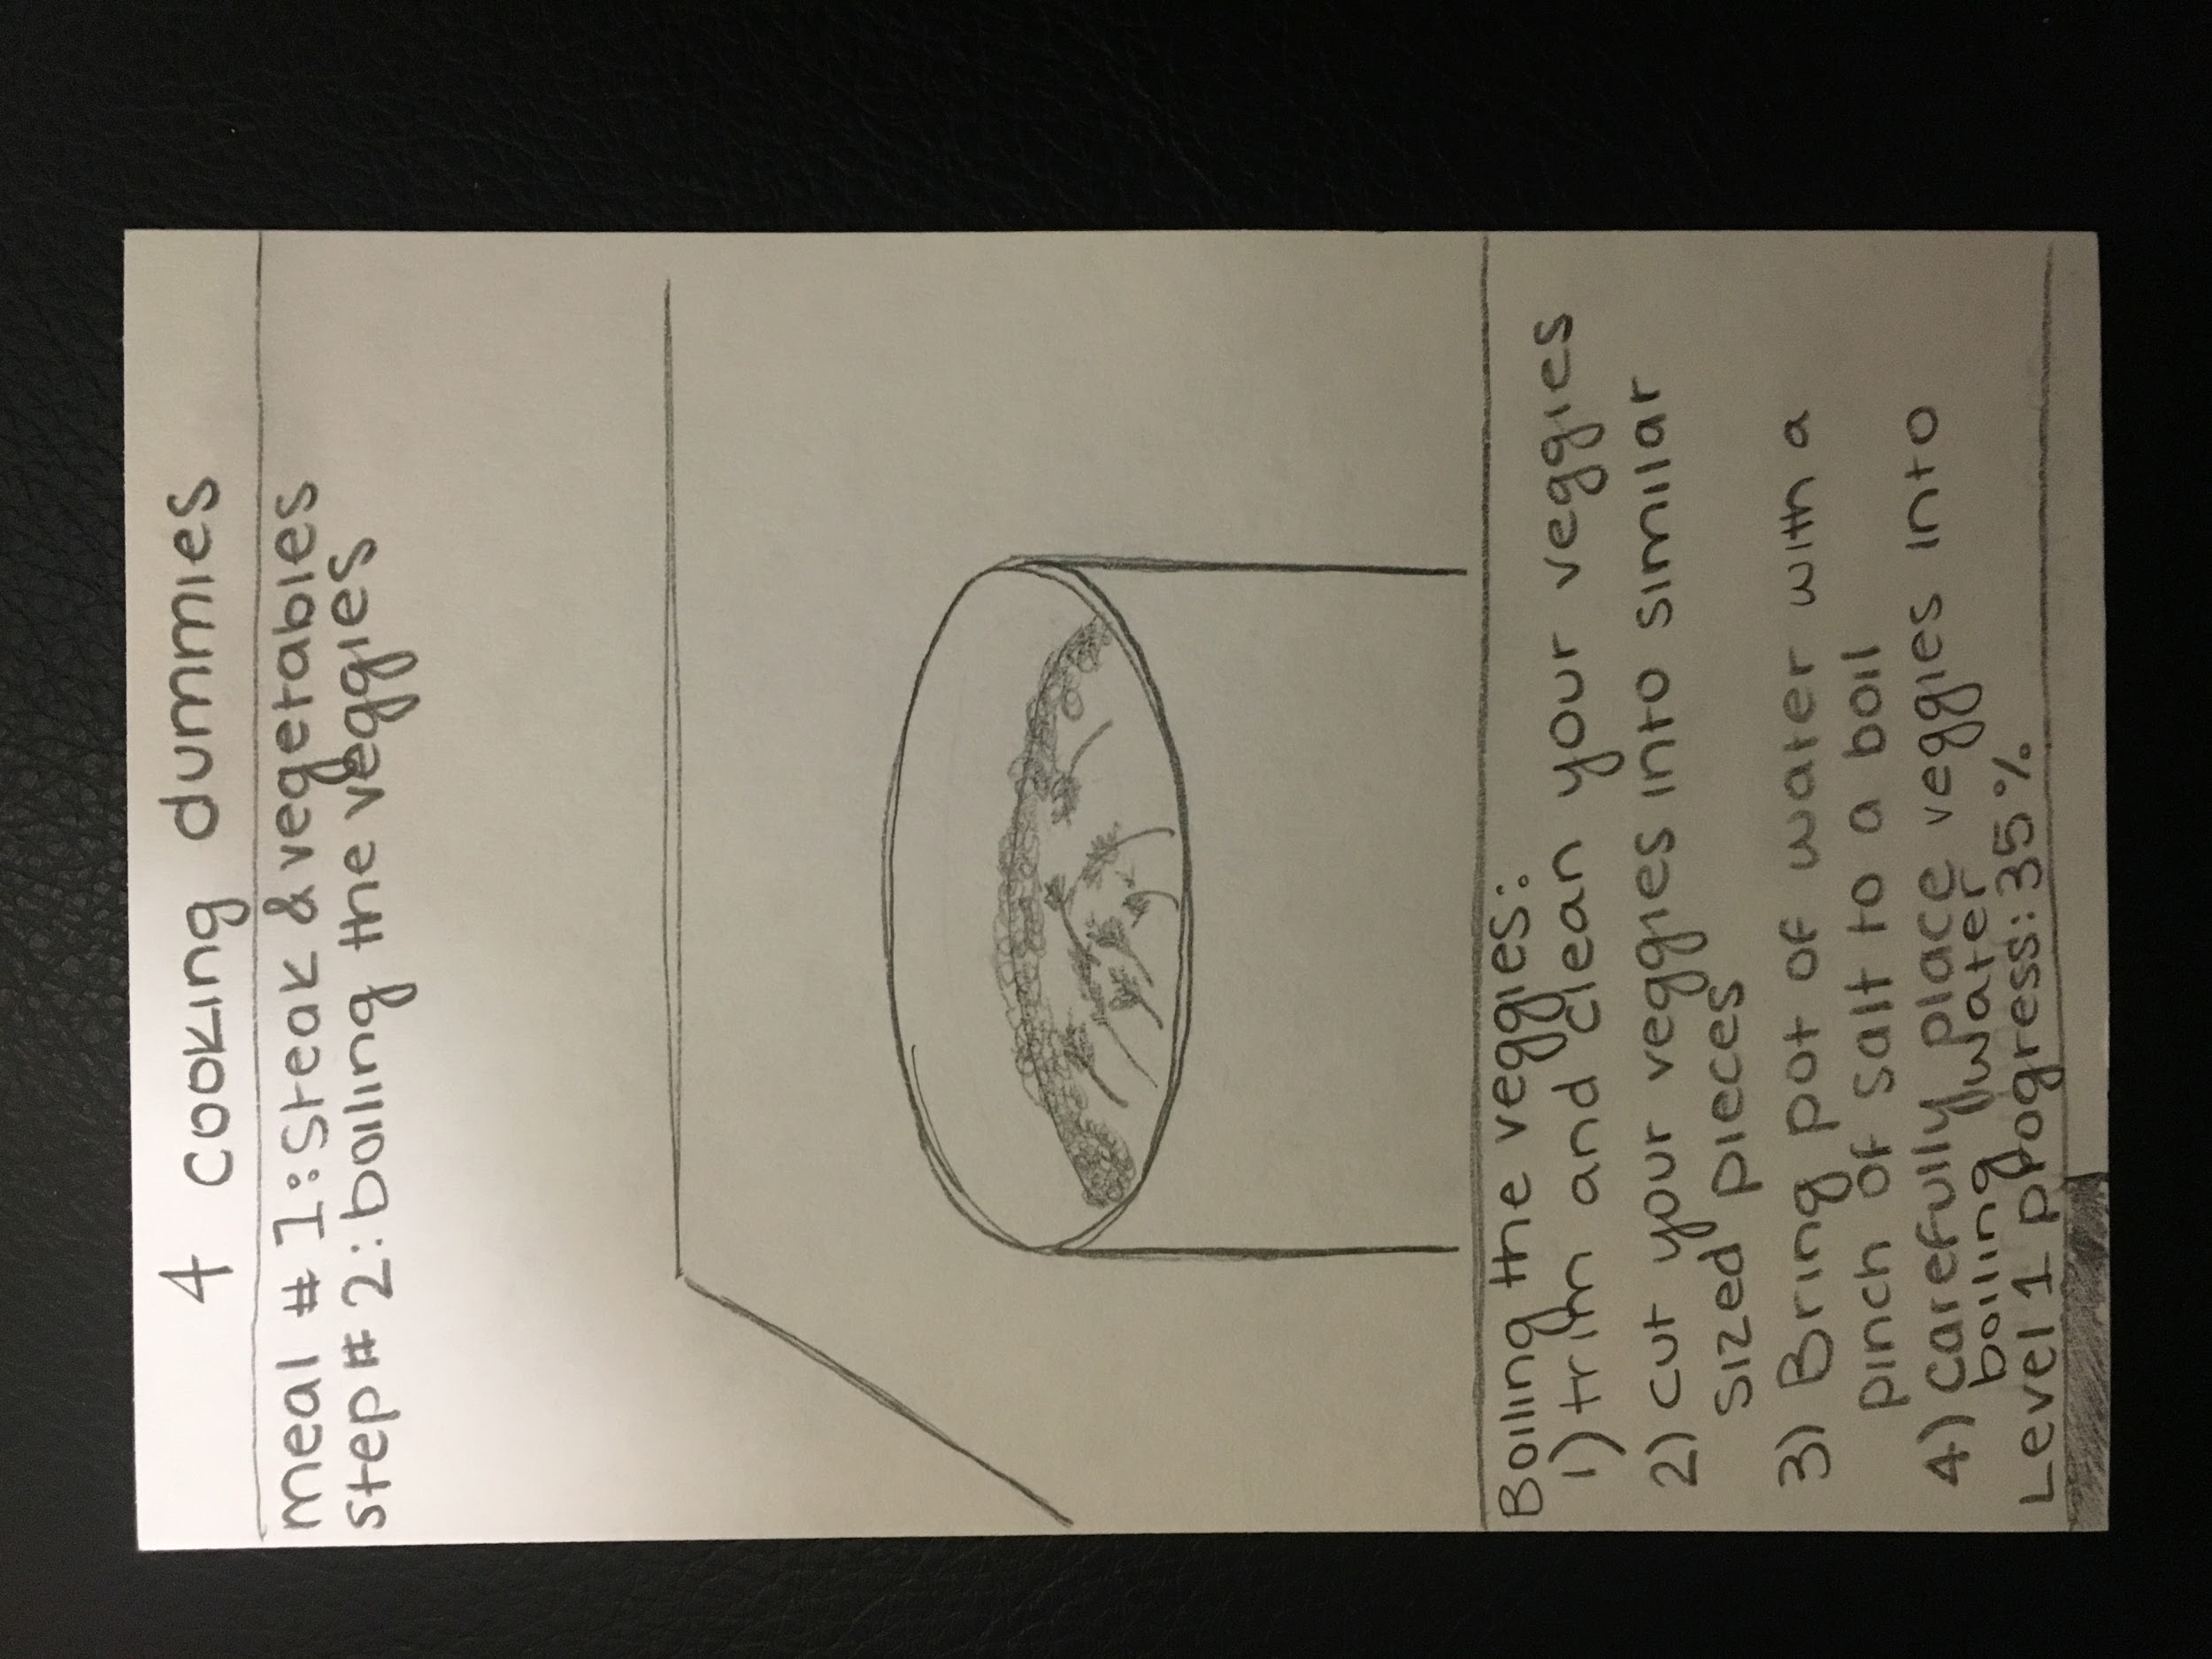 4 cooking dummies
meal # 1: steak & vegetables
step # 2: boiling the veggies
Boiling the veggies:
1) trim and clean your veggies
2) cut your veggies into similar
sized pieces
3) Bring pot of water with a
pinch of salt to a boil
4) carefully place veggies into
boiling water
Level 1 progress: 35%